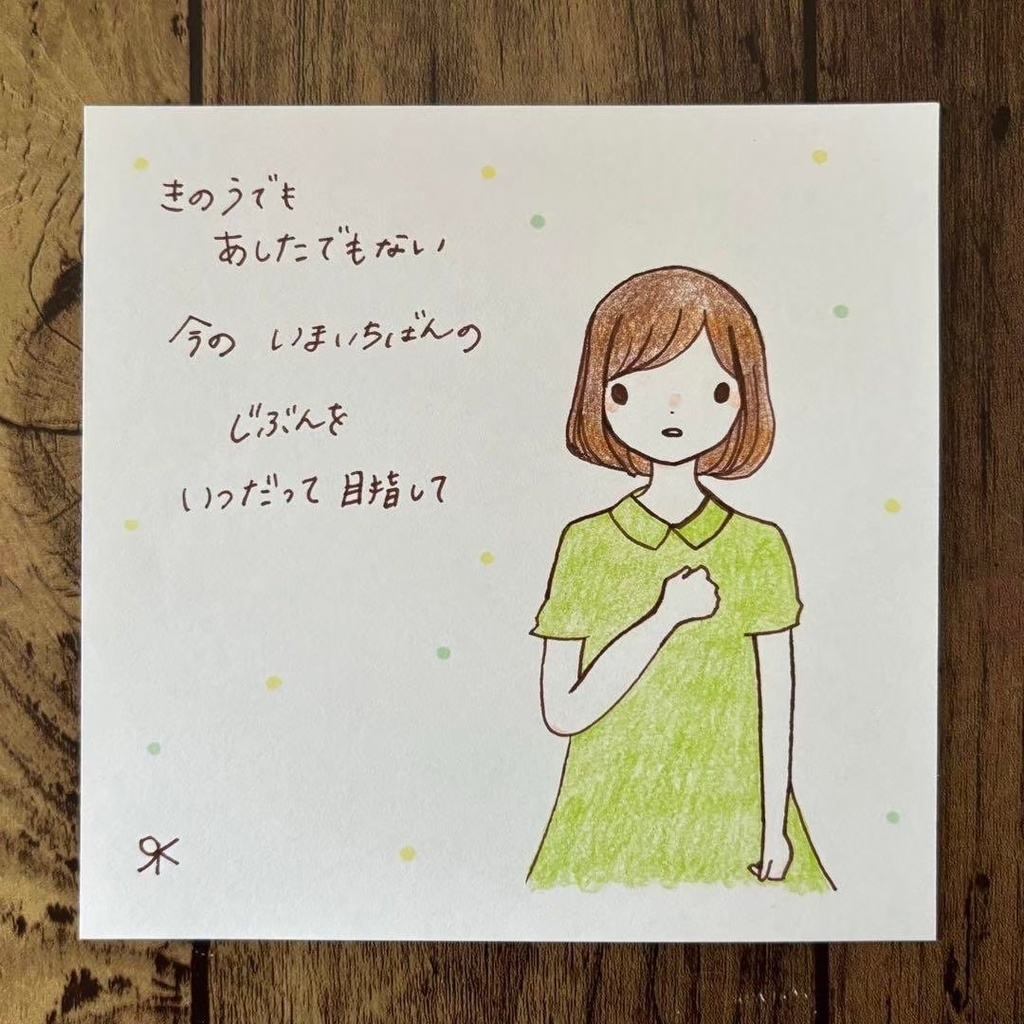 きのうでも
あしたでもない
今の いまいちばんの
じぶんを
いつだって 目指して